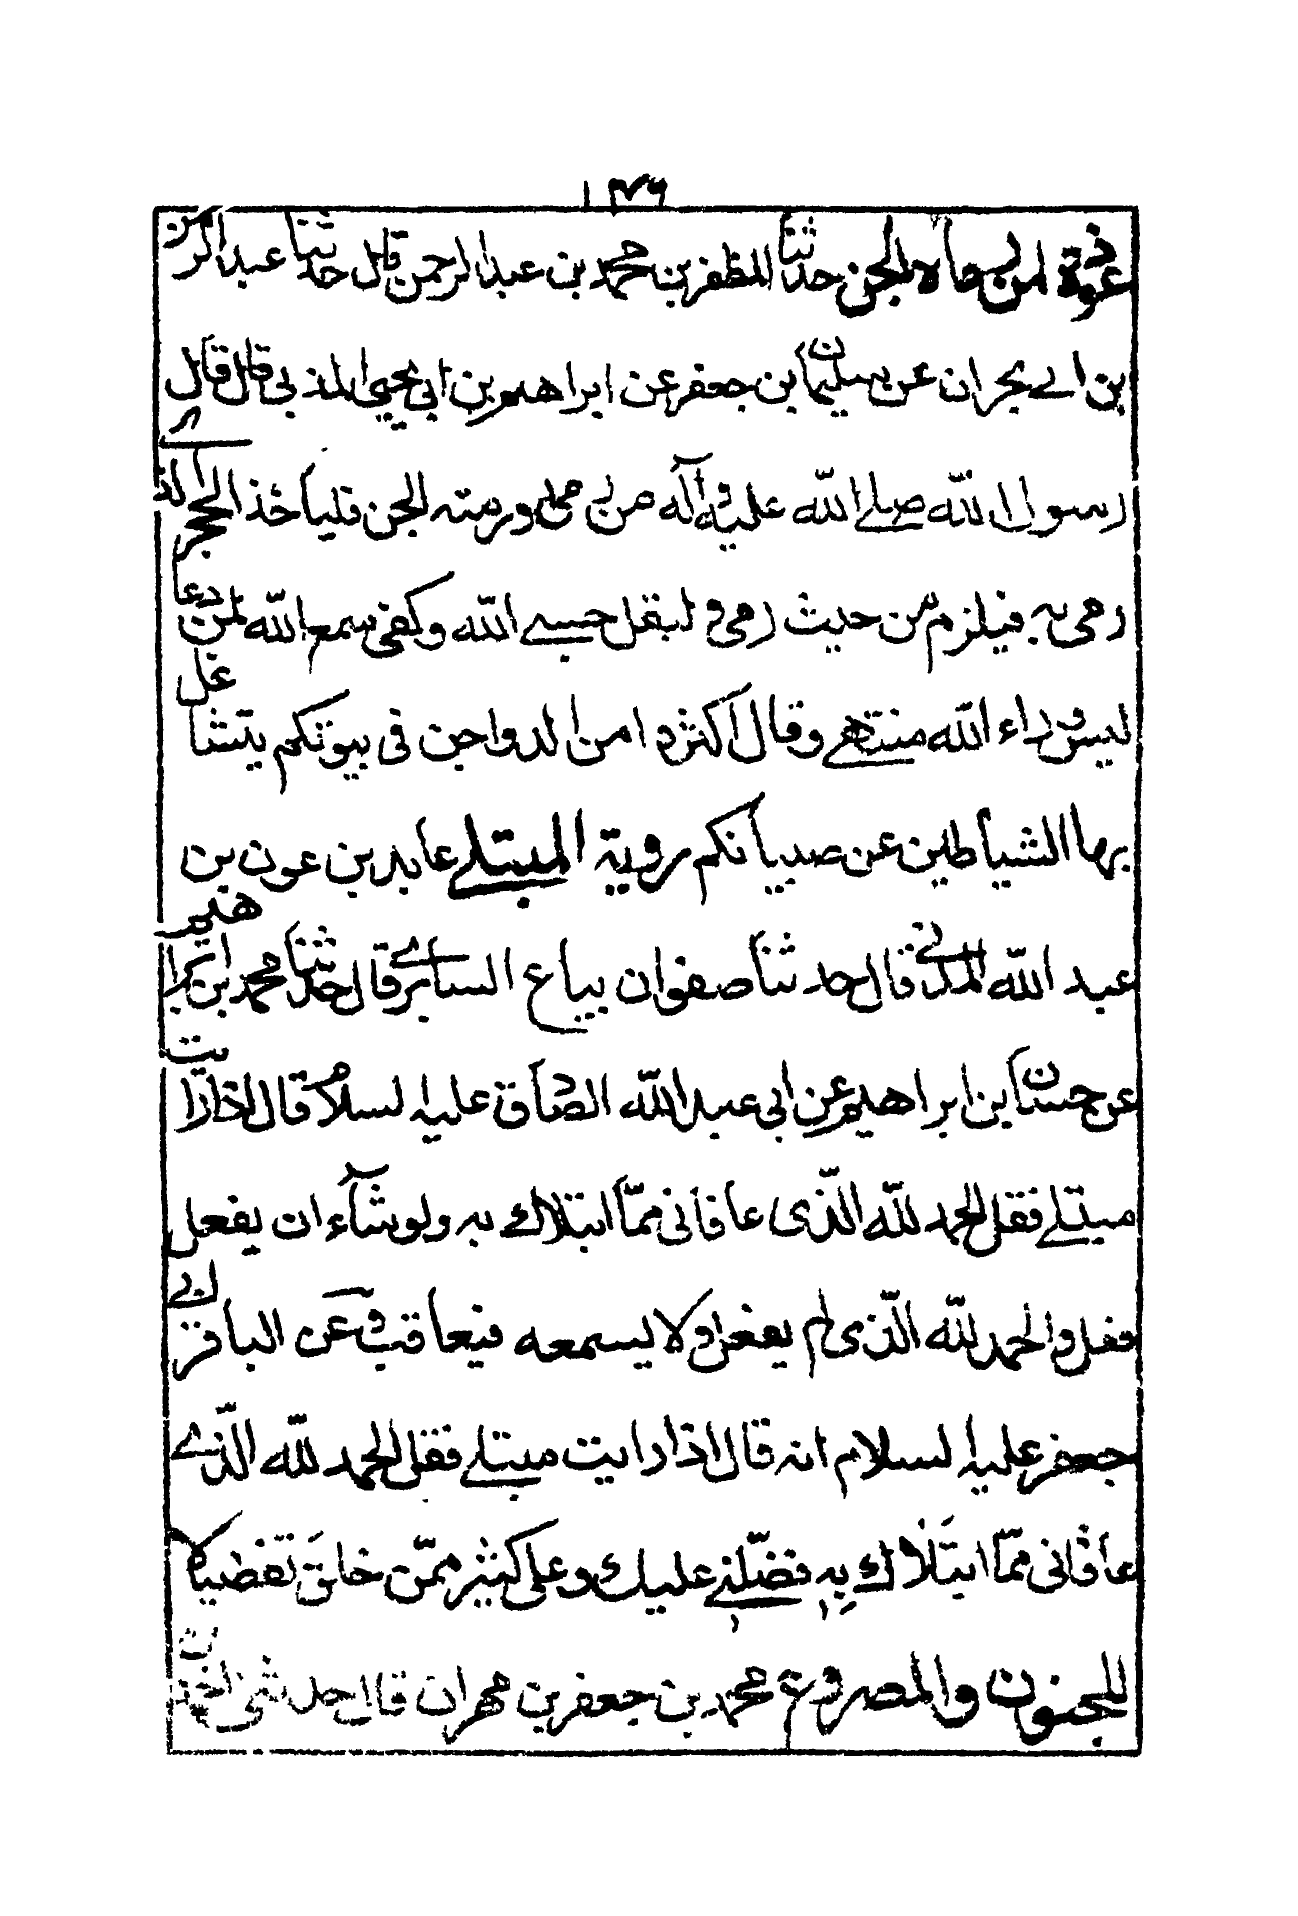 ١٣٦
عوذة لمن رماه الجن حدثنا المظفر بن محمد بن عبد الرحمن قال حدثنا عبد الرحمن
بن ابي نجران عن سليمان بن جعفر عن ابراهيم بن ابي يحيى المدني قال قال
رسول الله صلى الله عليه وآله من رمى ورمته الجن فلياخذ الحجر الذى
رمى به فيلزم من حيث رمى وليقل حسبي الله وكفى سمع الله لمن دعا
ليس وراء الله منتهى وقال اكثروا من الدواجن في بيوتكم يتشاغل
بها الشياطين عن صبيانكم روية المبتلى عابد بن عون بن
عبد الله المدني قال حدثنا صفوان بياع السابري قال حدثنا محمد بن ابراهيم
عن حنان بن ابراهيم عن ابي عبد الله الصادق عليه السلام قال اذا رايت
مبتلى فقل الحمد لله الذى عافانى مما ابتلاك به ولو شاء ان يفعل
فعل والحمد لله الذى لم يفعل ولا يسمعه فيعاقب وعن الباقر ابي
جعفر عليه السلام انه قال اذا رايت مبتلى فقل الحمد لله الذي
عافانى مما ابتلاك به وفضلني عليك وعلى كثير ممن خلق تفضيلا
للجنون والمصروع محمد بن جعفر بن مهران قال حدثنى احمد بن